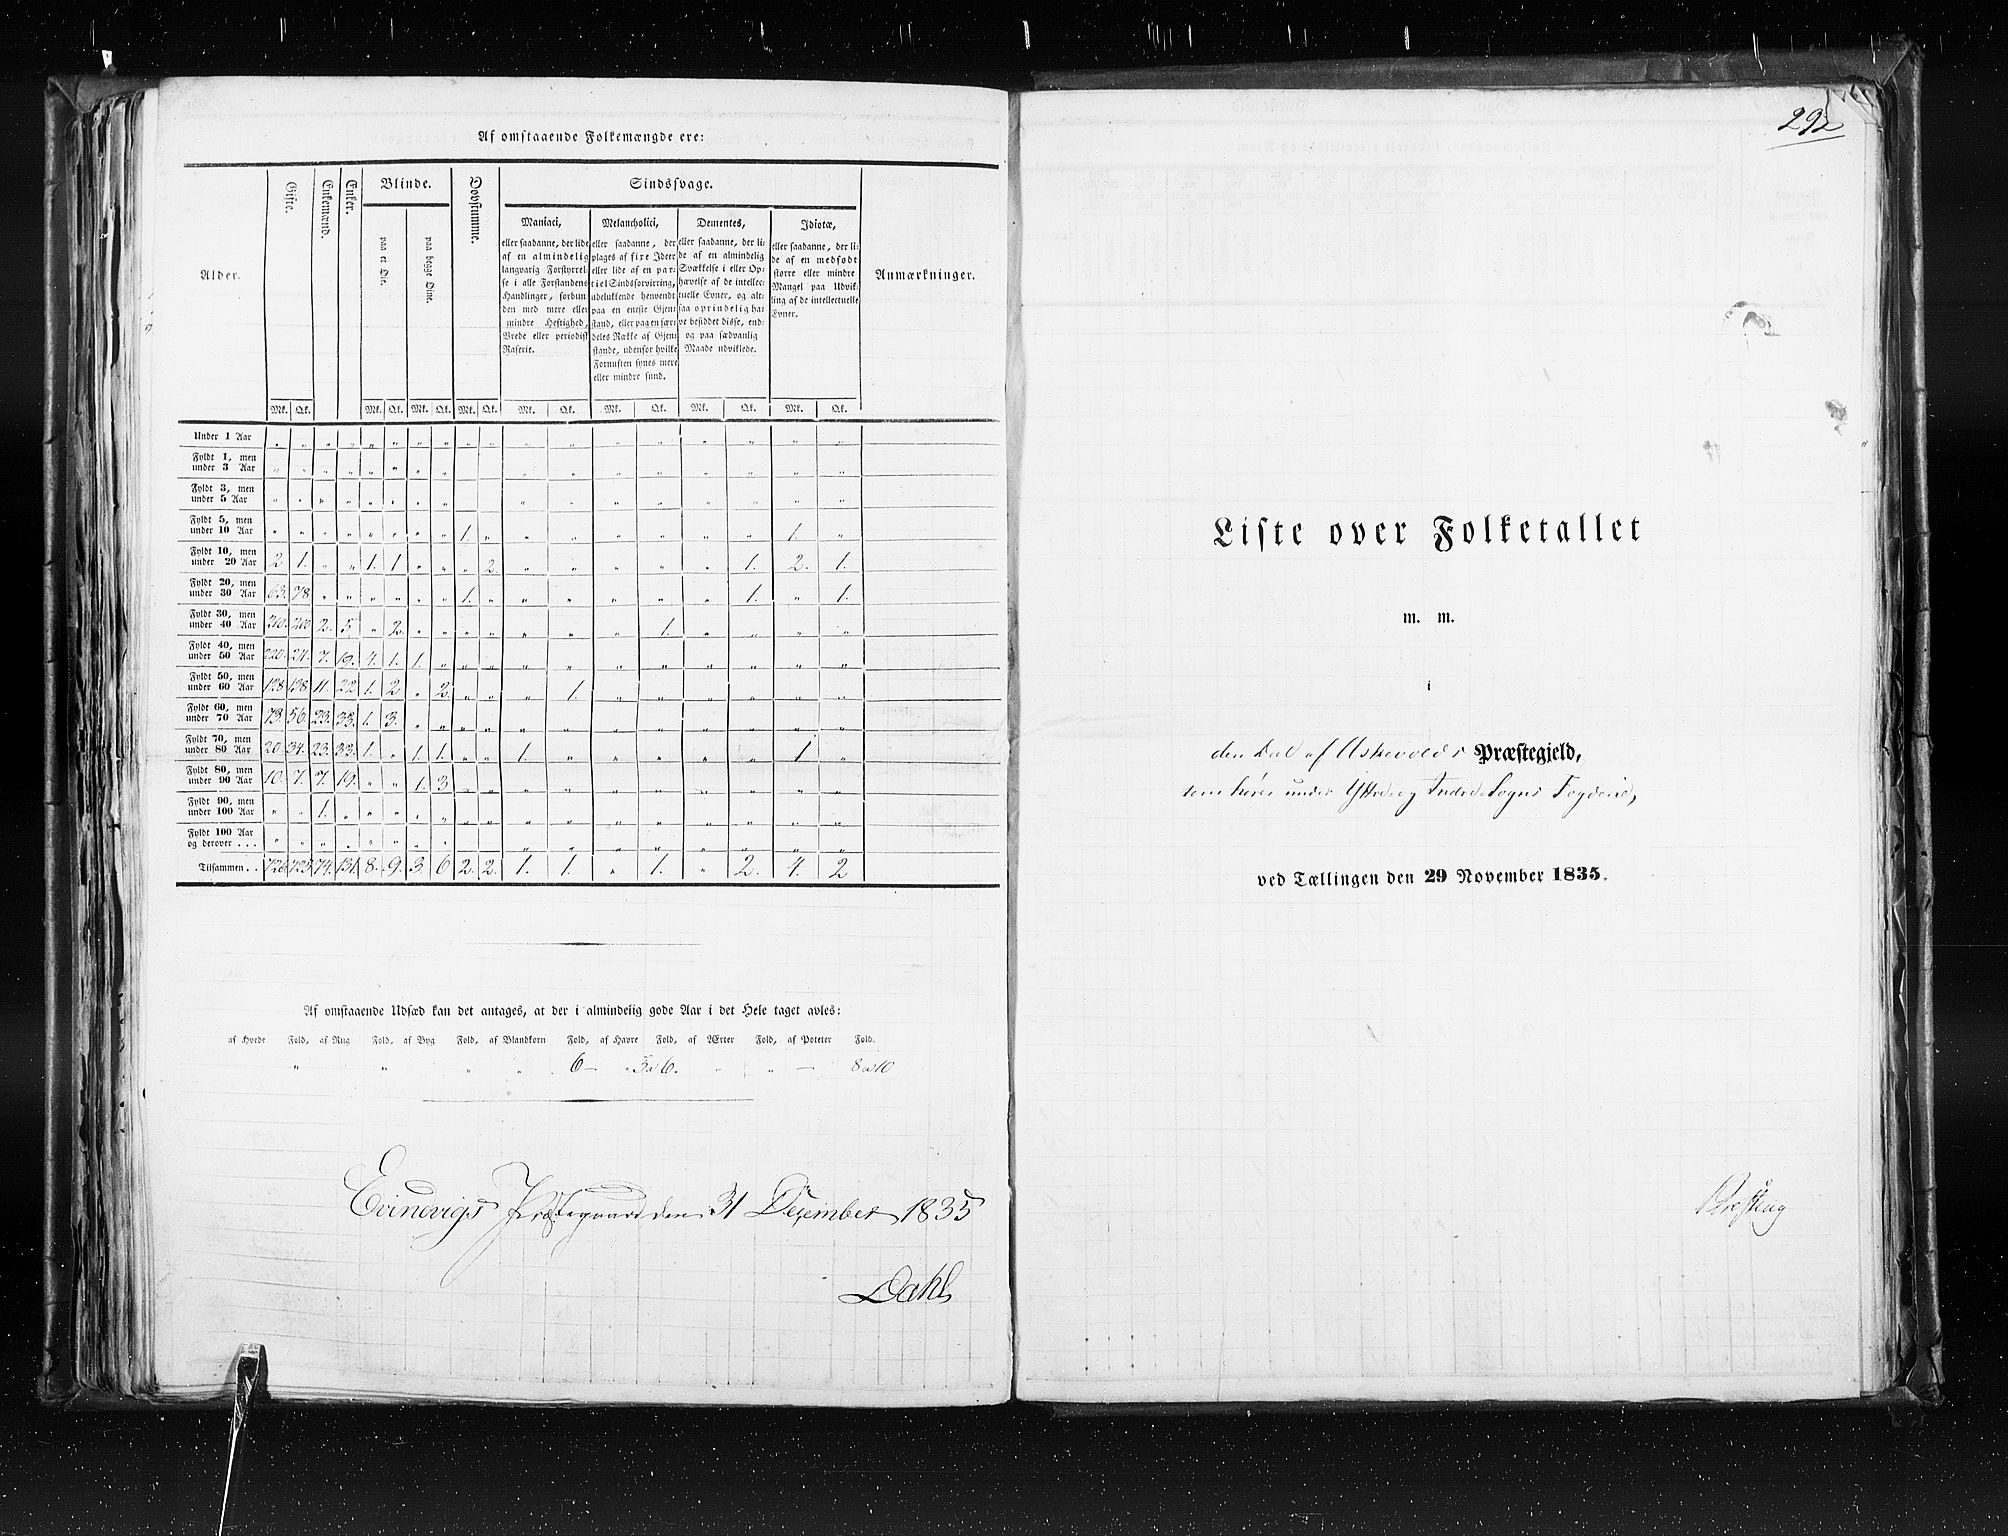 Af omstaaende Folkemængde ere:
Alder. Gifte. Enkemænd. Enker. Blinde. Døvstumme. Sindssvage. Anmærkninger.
paa et Øie. paa begge Øine.
Maniaci,
eller saadanne, der lide
af en almindelig
langvarig Forstyrrel-
se i alle Forstandens
Handlinger, forbun-
den med mere eller
mindre Heftighed,
Vrede eller periodisk
Raserie.
Melancholici,
eller saadanne, der
plages af fixe Ideer
eller lide af en par-
tiel Sindsforvirring,
udelukkende henvendt
paa en eneste Gjen-
stand, eller paa en sær-
deles Række af Gjen-
stande, udenfor hvilke
Fornuften synes mere
eller mindre sund.
Dementes,
eller saadanne, der li-
de af en almindelig
Svækkelse i eller Op-
hævelse af de intellec-
tuelle Evner, og alt-
saa oprindelig ha-
ve besiddet disse, end-
og paa sædvanlig
Maade udviklede.
Idiotæ,
eller saadanne, der li-
de af en medfødt
større eller mindre
Mangel paa Udvik-
ling af de intellectuelle
Evner.
Mk. Qk. Mk. Qk. Mk. Qk. Mk. Qk. Mk. Qk. Mk. Qk. Mk. Qk. Mk. Qk.
Under 1 Aar " " " " " " " " " " " " " " " " " "
Fyldt 1, men
under 3 Aar " " " " " " " " " " " " " " " "
Fyldt 3, men
under 5 Aar " " " " " " " " " " " " " " " "
Fyldt 5, men
under 10 Aar " " " " " " " " 1. " " " " " " " 1. "
Fyldt 10, men
under 20 Aar 2 1. " " 1. 1 " " " 2. " " " " " 1. 2. 1.
Fyldt 20, men
under 30 Aar 63. 78 " " " " " " 1. " " " " " " 1. " 1.
Fyldt 30, men
under 40 Aar 210. 200 2. 5 " 2. " " " " " " " 1. " " " "
Fyldt 40, men
under 50 Aar 220. 211. 7. 19. 4. 1. 1. " " " " " " " " " " "
Fyldt 50, men
under 60 Aar 128 138. 11. 22 1. 2 " 2. " " " 1. " " " " " "
Fyldt 60, men
under 70 Aar 73. 56. 23. 33. 1. 3. " " " " " " " " " " " "
Fyldt 70, men
under 80 Aar 20 34. 23. 33. 1. " 1. 1. " " 1. " " " " " 1 "
Fyldt 80, men
under 90 Aar 10. 7. 7. 19. " " 1. 3 " " " " " " " " " "
Fyldt 90, men
under 100 Aar " " 1. " " " " " " " " " " " " " " "
Fyldt 100 Aar
og derover . . . " " " " " " " " " " " " " " " " " "
Tilsammen . . 726. 725. 74. 131. 8. 9. 3. 6 2. 2. 1. 1. " 1. " 2. 4. 2
Af omstaaende Udsæd kan det antages, at der i almindelig gode Aar i det Hele taget avles:
af Hvede Fold, af Rug Fold, af Byg Fold, af Blandkorn Fold, af Havre Fold, af Ærter Fold, af Poteter Fold.
" " " " 6 — " 5 a 6. " " — 8 a 10
Evindvigs Præstegaard den 31 December 1835
Dahl
292
Liste over Folketallet
m. m.
i
den Deel af Askevolds Præstegjeld,
som hører under Yttre og Indre Sogns Fogderie,
ved Tællingen den 29 November 1835.